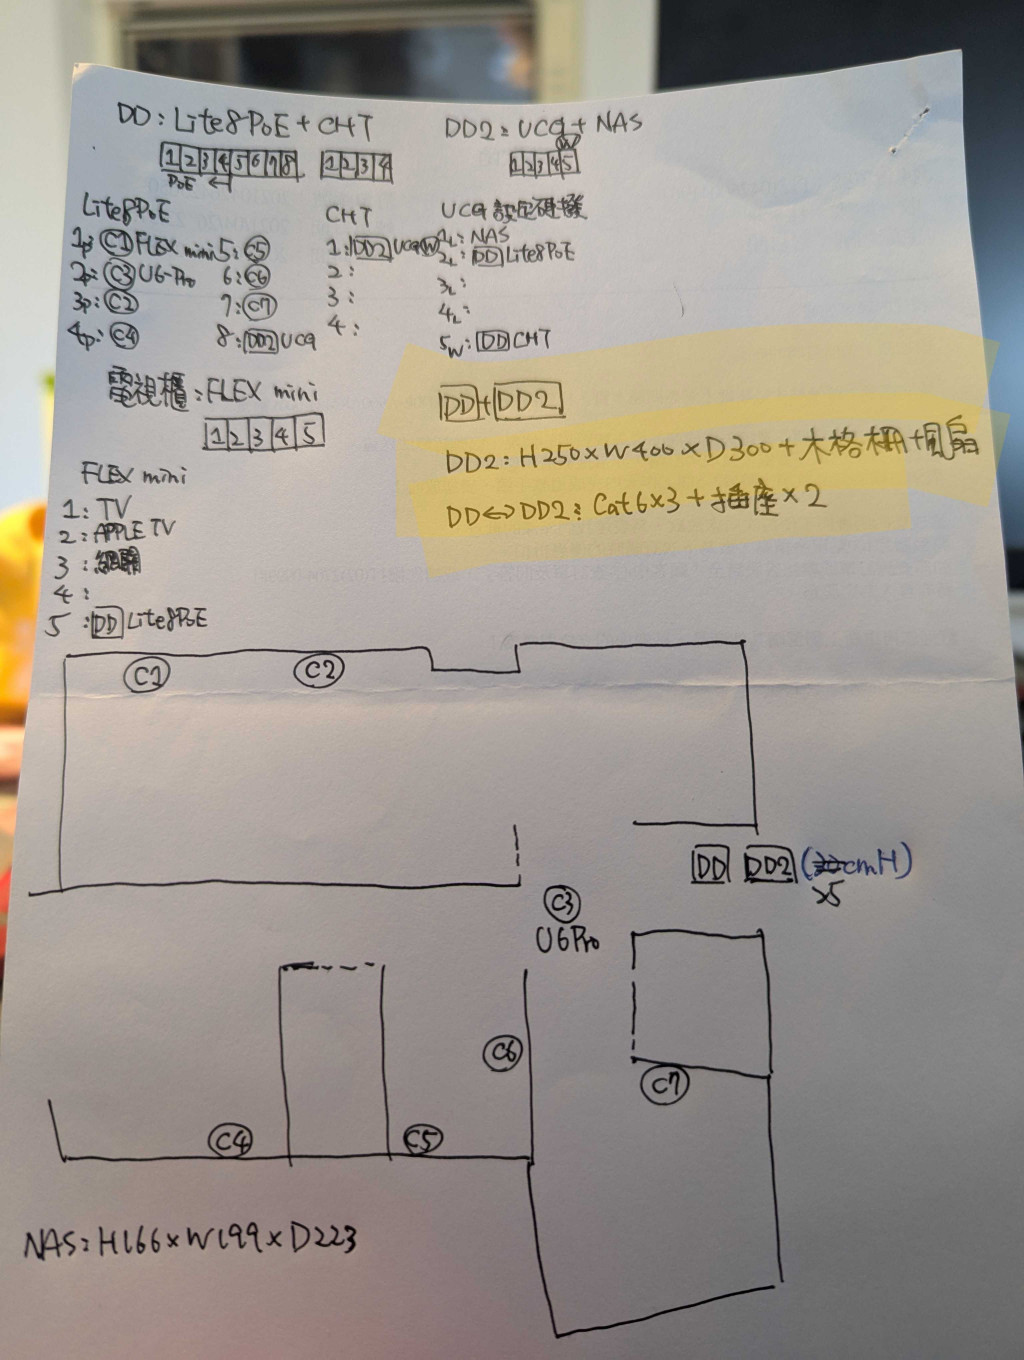 DD: Lite8PoE + CHT
1 2 3 4 5 6 7 8
PoE ←
1 2 3 4
Lite8PoE
1p: C1 FLEX mini
2p: C3 U6-Pro
3p: C2
4p: C4
5: C5
6: C6
7: C7
8: DD2 UCG
CHT
1: DD2 UCG W
2:
3:
4:
DD2: UCG + NAS
W
1 2 3 4 5
UCG
1L: NAS
2L: DD Lite8PoE
3L:
4L:
5W: DD CHT
電視櫃: FLEX mini
1 2 3 4 5
FLEX mini
1: TV
2: APPLE TV
3:
4:
5: DD Lite8PoE
DD + DD2
DD2: H250×W400×D300+木格柵+風扇
DD↔DD2: Cat6×3+插座×2
C1
C2
DD DD2 (cmH)
C3
U6Pro
C6
C7
C4
C5
NAS: H166×W199×D223